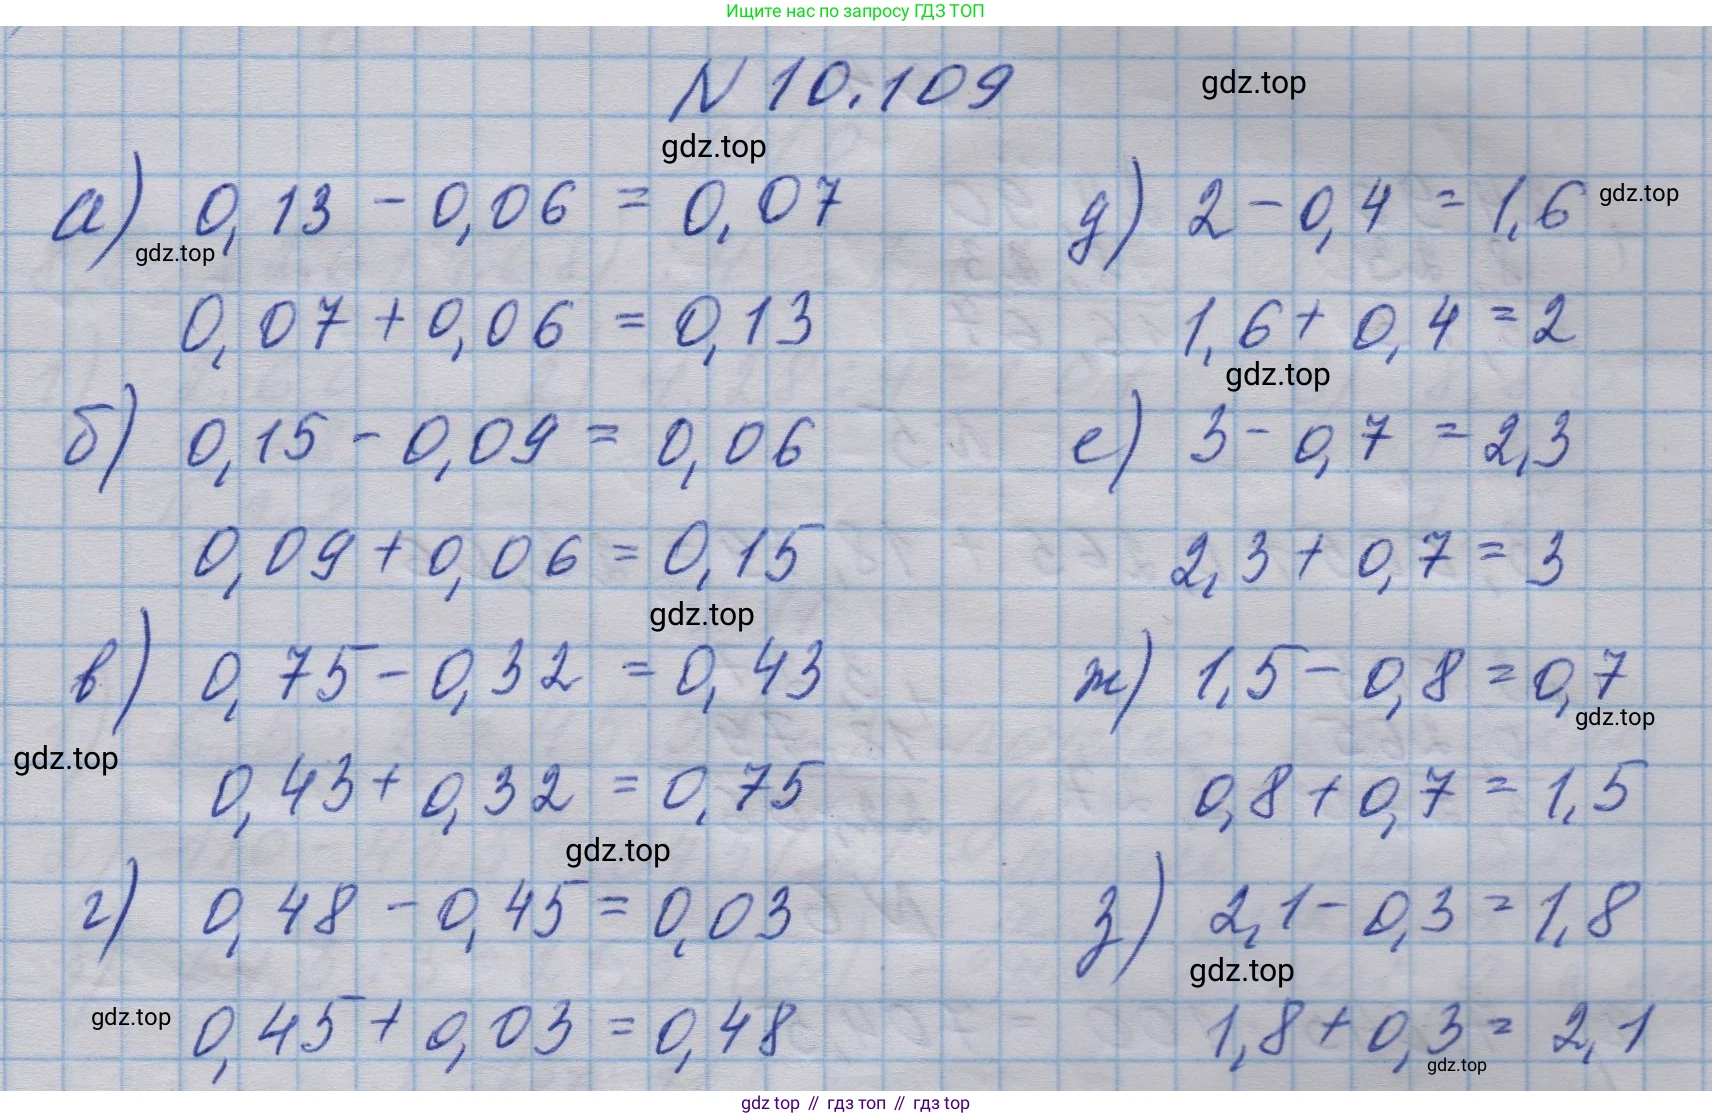 Ищите нас по запросу ГДЗ ТОП
N 10.109
gdz.top
gdz.top
а) 0,13 - 0,06 = 0,07
gdz.top
0,07 + 0,06 = 0,13
б) 0,15 - 0,09 = 0,06
0,09 + 0,06 = 0,15
gdz.top
в) 0,75 - 0,32 = 0,43
gdz.top
0,43 + 0,32 = 0,75
gdz.top
г) 0,48 - 0,45 = 0,03
gdz.top
0,45 + 0,03 = 0,48
д) 2 - 0,4 = 1,6
gdz.top
1,6 + 0,4 = 2
gdz.top
е) 3 - 0,7 = 2,3
2,3 + 0,7 = 3
ж) 1,5 - 0,8 = 0,7
gdz.top
0,8 + 0,7 = 1,5
з) 2,1 - 0,3 = 1,8
gdz.top
1,8 + 0,3 = 2,1
gdz.top
gdz top // гдз топ // гдз top